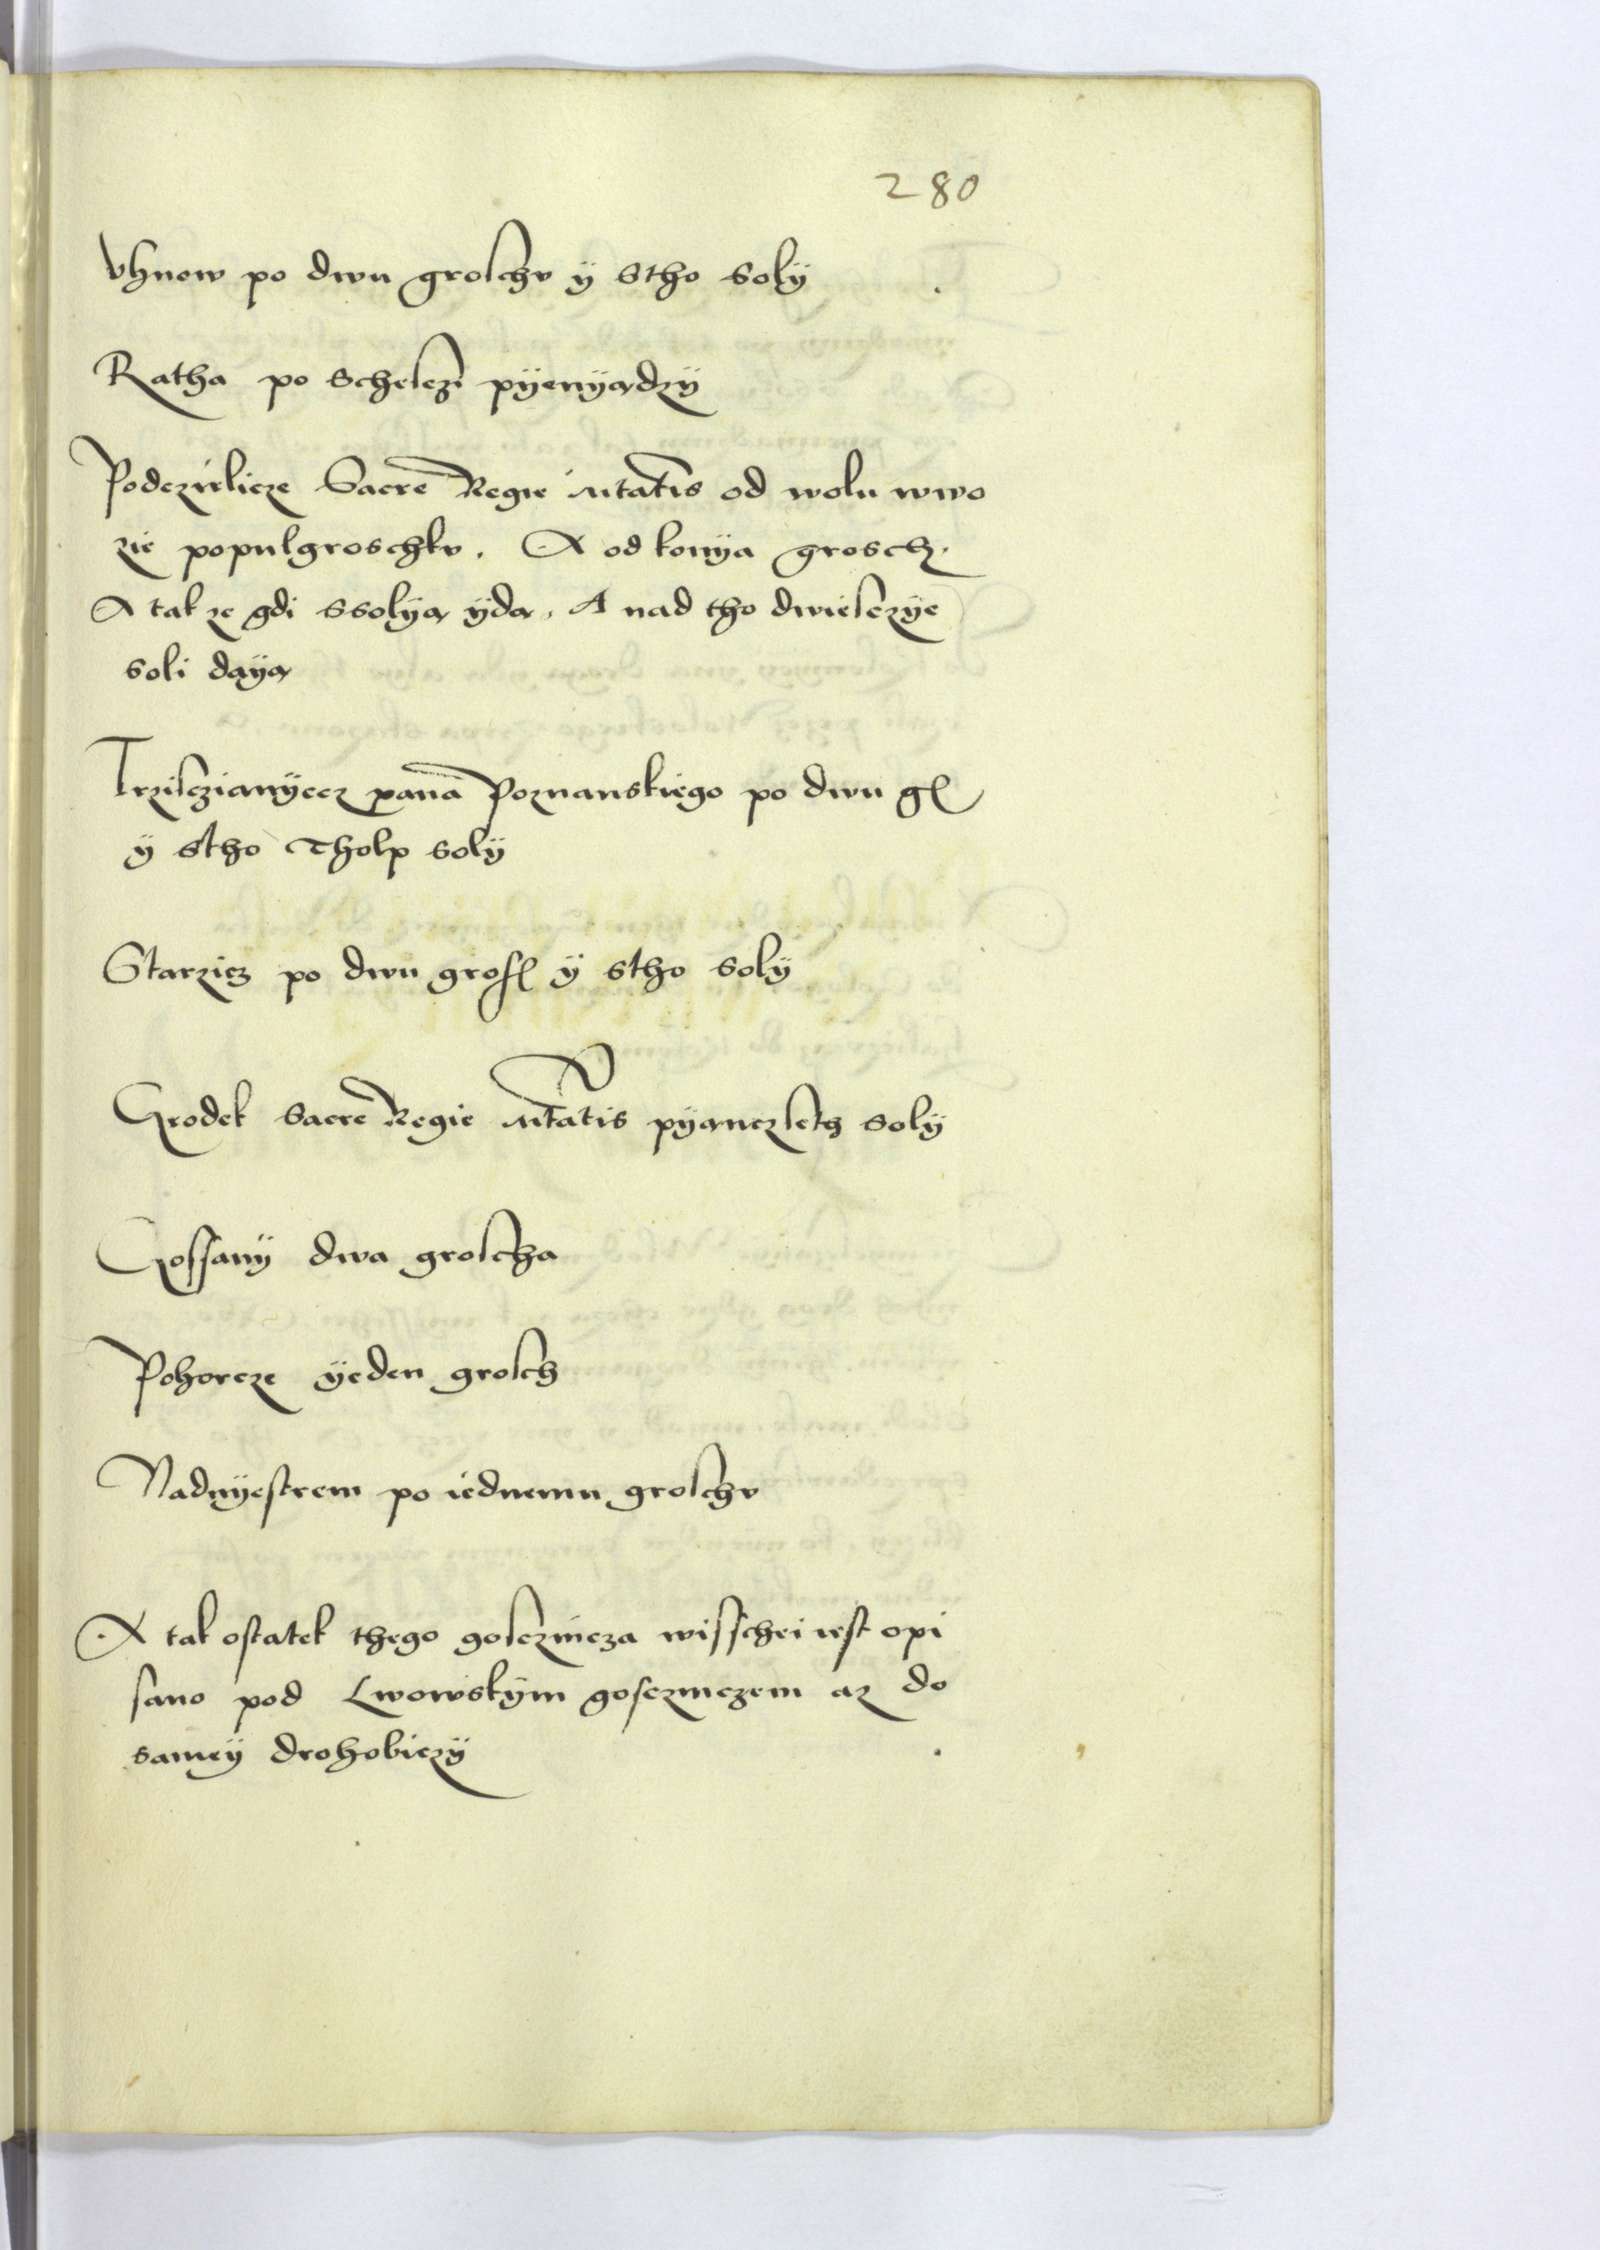 280
Vhnow po dwu groschv ÿ stho solÿ
Ratha po schesczi pÿenÿądzÿ
Podczirlicze Sacre Regie Mtatis od wolu wwo
zie populgroschkv. A od konÿa grosch.
A tak ze gdi ssolÿą ÿdą. A nad tho dwiesczÿe
soli daÿą
Trzisczianÿecz pana Poznanskiego po dwu gſ
ÿ stho Tholp solÿ
Starzicz po dwu groſſ ÿ stho solÿ
Grodek Sacre Regie Mtatis pÿanczseth solÿ
Cossanÿ dwa groscha
Pohorcze ÿeden grosch
Nadnÿestrem po iednemu groschv
A tak ostatek thego gosczincza wisschei iest opi
sano pod Lwowskÿm gosczinczem az do
sameÿ drohobiczÿ